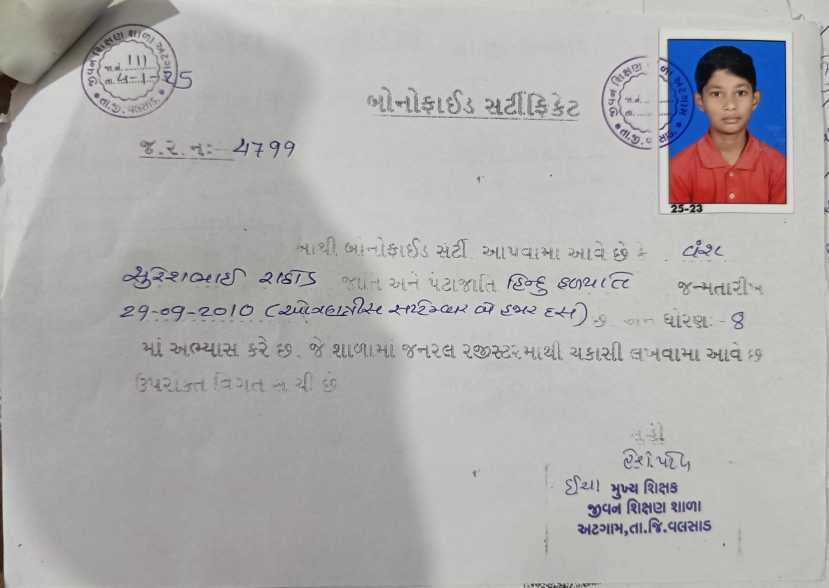 જીવન શિક્ષણ શાળા અટગામ
જા.નં. 111
તા. 4-1-25
તા.જી. વલસાડ.
બોનોફાઈડ સર્ટીફિકેટ
જ.ર.નં:- 4799
25-23
આથી બોનોફાઈડ સર્ટી આપવામા આવે છે કે વંશ
સુરેશભાઈ રાઠોડ જાતિ અને પેટાજાતિ હિન્દુ હળપતિ જન્મતારીખ
29-09-2010 (ઓગણત્રીસ સપ્ટેમ્બર બે હજાર દસ) છે. અને ધોરણ:- 8
માં અભ્યાસ કરે છે. જે શાળામાં જનરલ રજીસ્ટરમાથી ચકાસી લખવામા આવે છે
ઉપરોક્ત વિગત સાચી છે
મુખ્ય શિક્ષક
જીવન શિક્ષણ શાળા
અટગામ,તા.જિ.વલસાડ